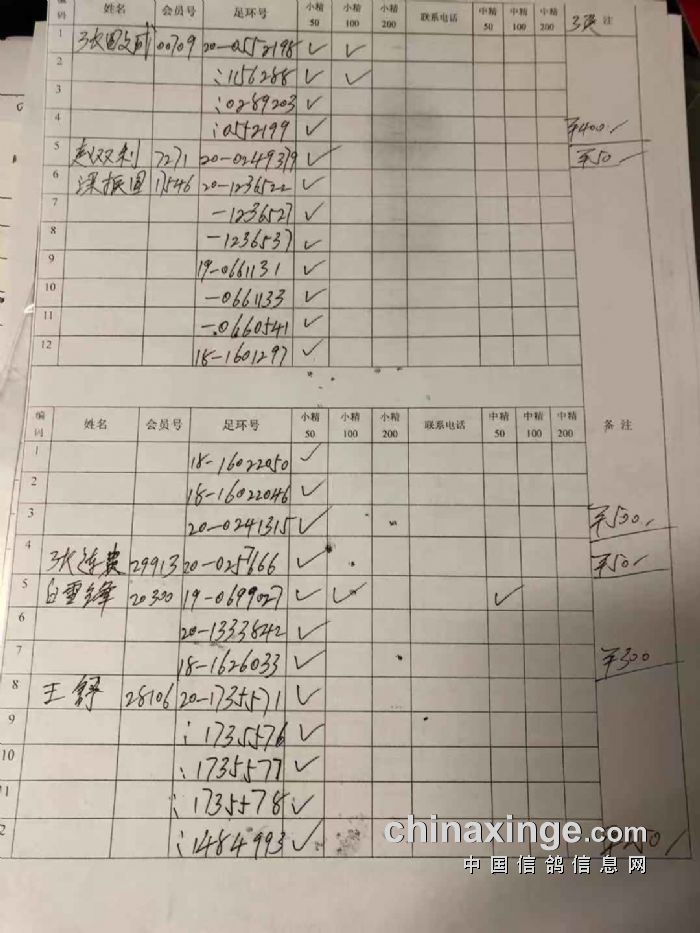 编码 姓名 会员号 足环号 小精50 小精100 小精200 联系电话 中精50 中精100 中精200 注
1 00709 20-0552198 ✓ ✓
2 ；1156288 ✓ ✓
3 ；0289203 ✓
4 ；0552199 ✓ ¥400
5 赵双利 7271 20-0249379 ✓ ¥50
6 梁振国 17546 20-1236522 ✓
7 -1236527 ✓
8 -1236537 ✓
9 19-0661131 ✓
10 -0661133 ✓
11 -0660541 ✓
12 18-1601297 ✓
编码 姓名 会员号 足环号 小精50 小精100 小精200 联系电话 中精50 中精100 中精200 备注
1 18-16022050 ✓
2 18-16022046 ✓
3 20-0241315 ✓ ¥500
4 张连贵 29913 20-0257666 ✓ ¥50
5 白雪峰 20300 19-0699027 ✓ ✓ ✓
6 20-1333842 ✓
7 18-1626033 ✓ ¥300
8 王舒 28106 20-1735571 ✓
9 ；1735576 ✓
10 ；1735577 ✓
11 ；1735578 ✓
12 ；1484993 ✓
chinaxinge.com
中国信鸽信息网